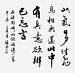 山氣日夕佳
飛鳥相與還此中
有真意欲辨
已忘言